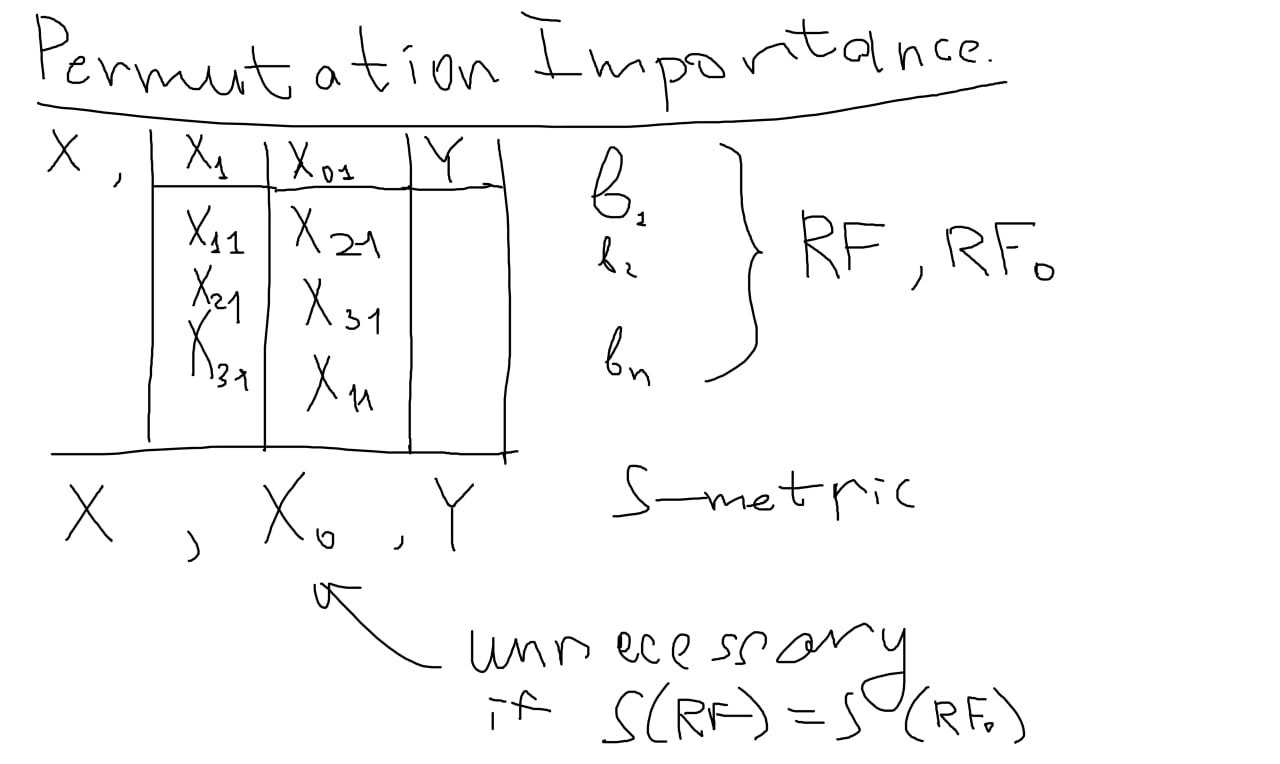 Permutation Importance.
X, X₁ X₀₁ Y
X₁₁ X₂₁
X₂₁ X₃₁
X₃₁ X₁₁
X, X₀, Y
b₁
b₂
bₙ
RF, RF₀
S-metric
unnecessary
if S(RF) = S(RF₀)